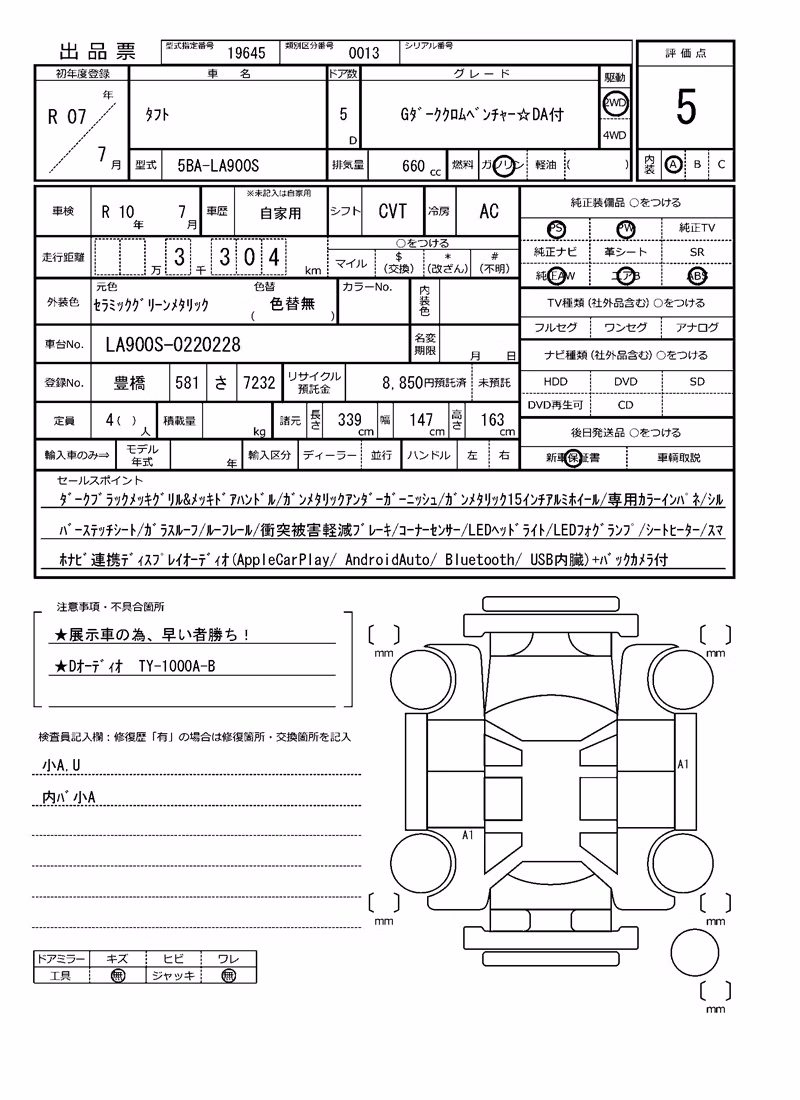 出品票 型式指定番号 19645 類別区分番号 0013 シリアル番号
評価点
初年度登録 車名 ドア数 グレード 駆動
R 07 年 7 月 タフト 5 D Gダーククロムベンチャー☆DA付 2WD 4WD
5
型式 5BA-LA900S 排気量 660 cc 燃料 ガソリン 軽油 ( )
内装 A B C
車検 R 10 年 7 月 車歴 ※未記入は自家用 自家用 シフト CVT 冷房 AC
純正装備品 ○をつける
PS PW 純正TV
走行距離 万 3 千 3 0 4 km ○をつける
マイル $(交換) *(改ざん) #(不明)
純正ナビ 革シート SR
純正AW エアB ABS
外装色 元色 セラミックグリーンメタリック 色替 ( 色替無 ) カラーNo. 内装色
TV種類(社外品含む)○をつける
フルセグ ワンセグ アナログ
車台No. LA900S-0220228 名変期限 月 日
ナビ種類(社外品含む)○をつける
登録No. 豊橋 581 さ 7232 リサイクル預託金 8,850円預託済 未預託
HDD DVD SD
DVD再生可 CD
定員 4( ) 人 積載量 kg 諸元 長さ 339 cm 幅 147 cm 高さ 163 cm
後日発送品 ○をつける
輸入車のみ⇒ モデル年式 年 輸入区分 ディーラー 並行 ハンドル 左 右
新車保証書 車輌取説
セールスポイント
ダークブラックメッキグリル&メッキドアハンドル/ガンメタリックアンダーガーニッシュ/ガンメタリック15インチアルミホイール/専用カラーインパネ/シル
バーステッチシート/ガラスルーフ/ルーフレール/衝突被害軽減ブレーキ/コーナーセンサー/LEDヘッドライト/LEDフォグランプ/シートヒーター/スマ
ホナビ連携ディスプレイオーディオ(AppleCarPlay/ AndroidAuto/ Bluetooth/ USB内臓)+バックカメラ付
注意事項・不具合箇所
★展示車の為、早い者勝ち!
★Dオーディオ TY-1000A-B
mm
mm
検査員記入欄:修復歴「有」の場合は修復箇所・交換箇所を記入
小A,U
内バ小A
A1
A1
mm
mm
ドアミラー キズ ヒビ ワレ
工具 無 ジャッキ 無
mm